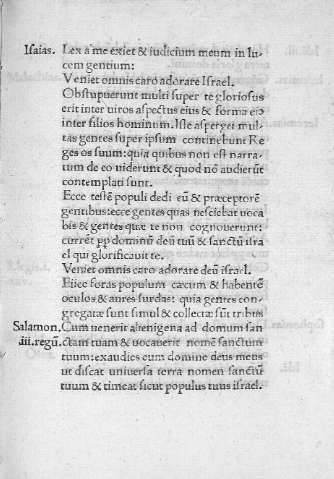 Isaias. Lex a me exiet & iudicium meum in lu
cem gentium:
Veniet omnis caro adorare Israel.
Obstupuerunt multi super te gloriosus
erit inter uiros aspectus eius & forma eio
inter filios hominum. Iste asperget mul
tas gentes super ipsum continebunt Re
ges os suum: quia quibus non est narra
tum de eo uiderunt & quod nō audierūt
contemplati sunt.
Ecce testē populi dedi eū & præceptorē
gentibus: ecce gentes quas nesciebat uoca
bis & gentes quæ te non cognouerunt:
currēt pp dominū deū tuū & sanctū isra
el qui glorificauit te.
Veniet omnis caro adorare deū israel.
Eiice foras populum cæcum & habentē
oculos & aures surdas: quia gentes con
gregatæ sunt simul & collectæ sūt tribus
Salamon. Cum uenerit alienigena ad domum san
.iii.regū. ctam tuam & uocauerit nomē sanctum
tuum: exaudies eum domine deus meus
ut discat uniuersa terra nomen sanctū
tuum & timeat sicut populus tuus israel.